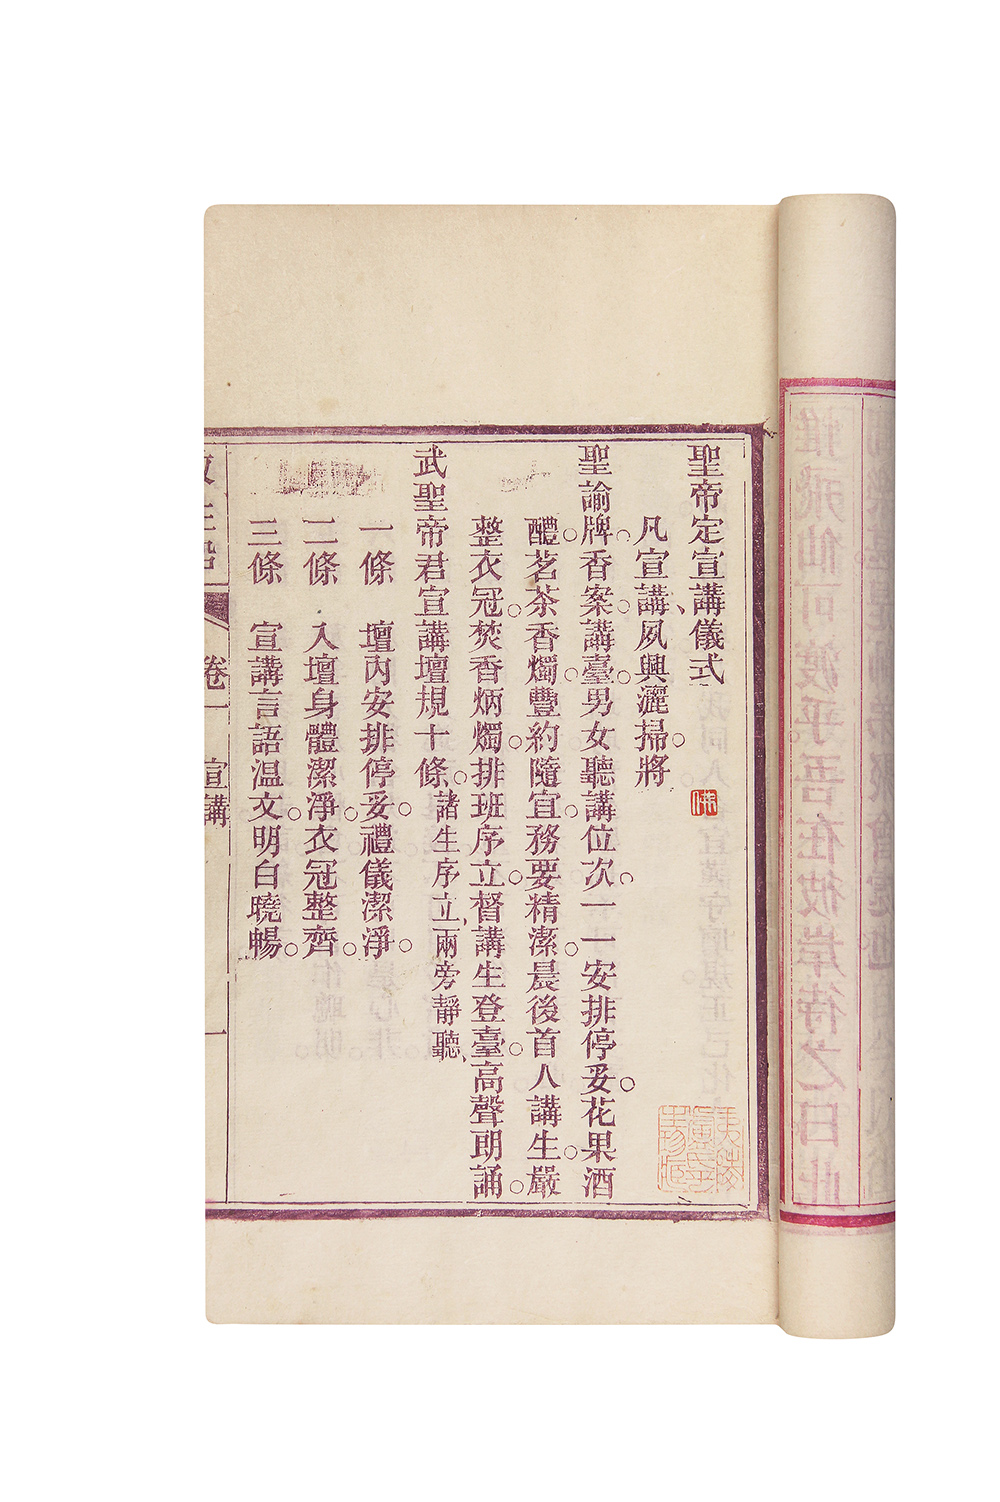 聖帝定宣講儀式
凡宣講夙興灑掃將
聖諭牌香案講臺男女聽講位次一一安排停妥花果酒
醴茗茶香燭豐約隨宜務要精潔晨後首人講生嚴
整衣冠焚香炳燭排班序立督講生登臺高聲朗誦
武聖帝君宣講壇規十條諸生序立兩旁靜聽
一條 壇內安排停妥禮儀潔淨
二條 入壇身體潔淨衣冠整齊
三條 宣講言語溫文明白曉暢
卷一 宣講 一